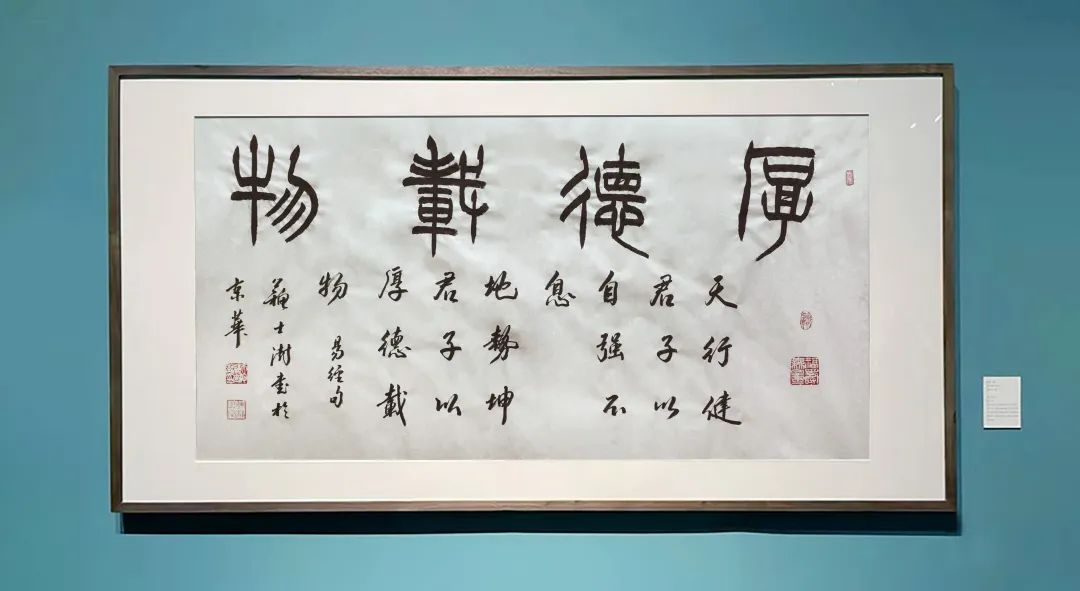 厚德載物
天行健
君子以
自强不
息
地勢坤
君子以
厚德載
物
易经句
蘇士澍書於
京華